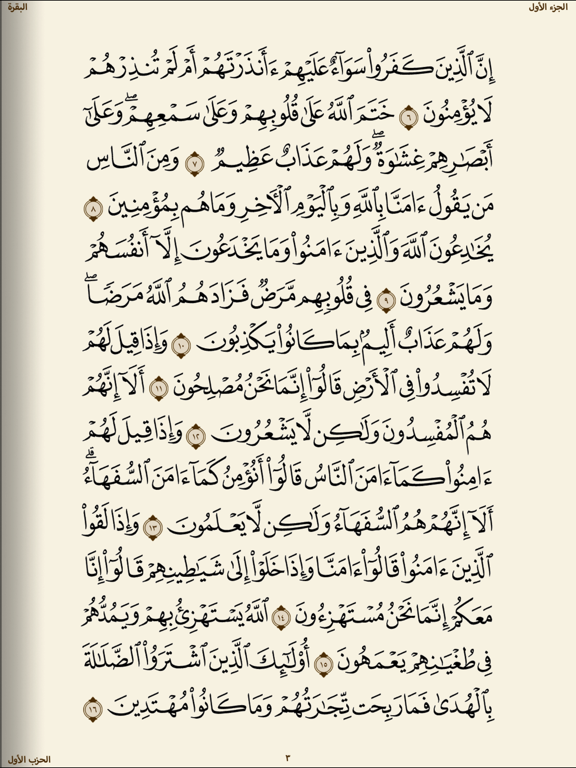 الجزء الأول
البقرة
إِنَّ ٱلَّذِينَ كَفَرُوا۟ سَوَآءٌ عَلَيْهِمْ ءَأَنذَرْتَهُمْ أَمْ لَمْ تُنذِرْهُمْ
لَا يُؤْمِنُونَ ٦ خَتَمَ ٱللَّهُ عَلَىٰ قُلُوبِهِمْ وَعَلَىٰ سَمْعِهِمْ ۖ وَعَلَىٰٓ
أَبْصَٰرِهِمْ غِشَٰوَةٌ ۖ وَلَهُمْ عَذَابٌ عَظِيمٌ ٧ وَمِنَ ٱلنَّاسِ
مَن يَقُولُ ءَامَنَّا بِٱللَّهِ وَبِٱلْيَوْمِ ٱلْءَاخِرِ وَمَا هُم بِمُؤْمِنِينَ ٨
يُخَٰدِعُونَ ٱللَّهَ وَٱلَّذِينَ ءَامَنُوا۟ وَمَا يَخْدَعُونَ إِلَّآ أَنفُسَهُمْ
وَمَا يَشْعُرُونَ ٩ فِى قُلُوبِهِم مَّرَضٌ فَزَادَهُمُ ٱللَّهُ مَرَضًا ۖ
وَلَهُمْ عَذَابٌ أَلِيمٌۢ بِمَا كَانُوا۟ يَكْذِبُونَ ١٠ وَإِذَا قِيلَ لَهُمْ
لَا تُفْسِدُوا۟ فِى ٱلْأَرْضِ قَالُوٓا۟ إِنَّمَا نَحْنُ مُصْلِحُونَ ١١ أَلَآ إِنَّهُمْ
هُمُ ٱلْمُفْسِدُونَ وَلَٰكِن لَّا يَشْعُرُونَ ١٢ وَإِذَا قِيلَ لَهُمْ
ءَامِنُوا۟ كَمَآ ءَامَنَ ٱلنَّاسُ قَالُوٓا۟ أَنُؤْمِنُ كَمَآ ءَامَنَ ٱلسُّفَهَآءُ ۗ
أَلَآ إِنَّهُمْ هُمُ ٱلسُّفَهَآءُ وَلَٰكِن لَّا يَعْلَمُونَ ١٣ وَإِذَا لَقُوا۟
ٱلَّذِينَ ءَامَنُوا۟ قَالُوٓا۟ ءَامَنَّا وَإِذَا خَلَوْا۟ إِلَىٰ شَيَٰطِينِهِمْ قَالُوٓا۟ إِنَّا
مَعَكُمْ إِنَّمَا نَحْنُ مُسْتَهْزِءُونَ ١٤ ٱللَّهُ يَسْتَهْزِئُ بِهِمْ وَيَمُدُّهُمْ
فِى طُغْيَٰنِهِمْ يَعْمَهُونَ ١٥ أُو۟لَٰٓئِكَ ٱلَّذِينَ ٱشْتَرَوُا۟ ٱلضَّلَٰلَةَ
بِٱلْهُدَىٰ فَمَا رَبِحَت تِّجَٰرَتُهُمْ وَمَا كَانُوا۟ مُهْتَدِينَ ١٦
٣
الحزب الأول